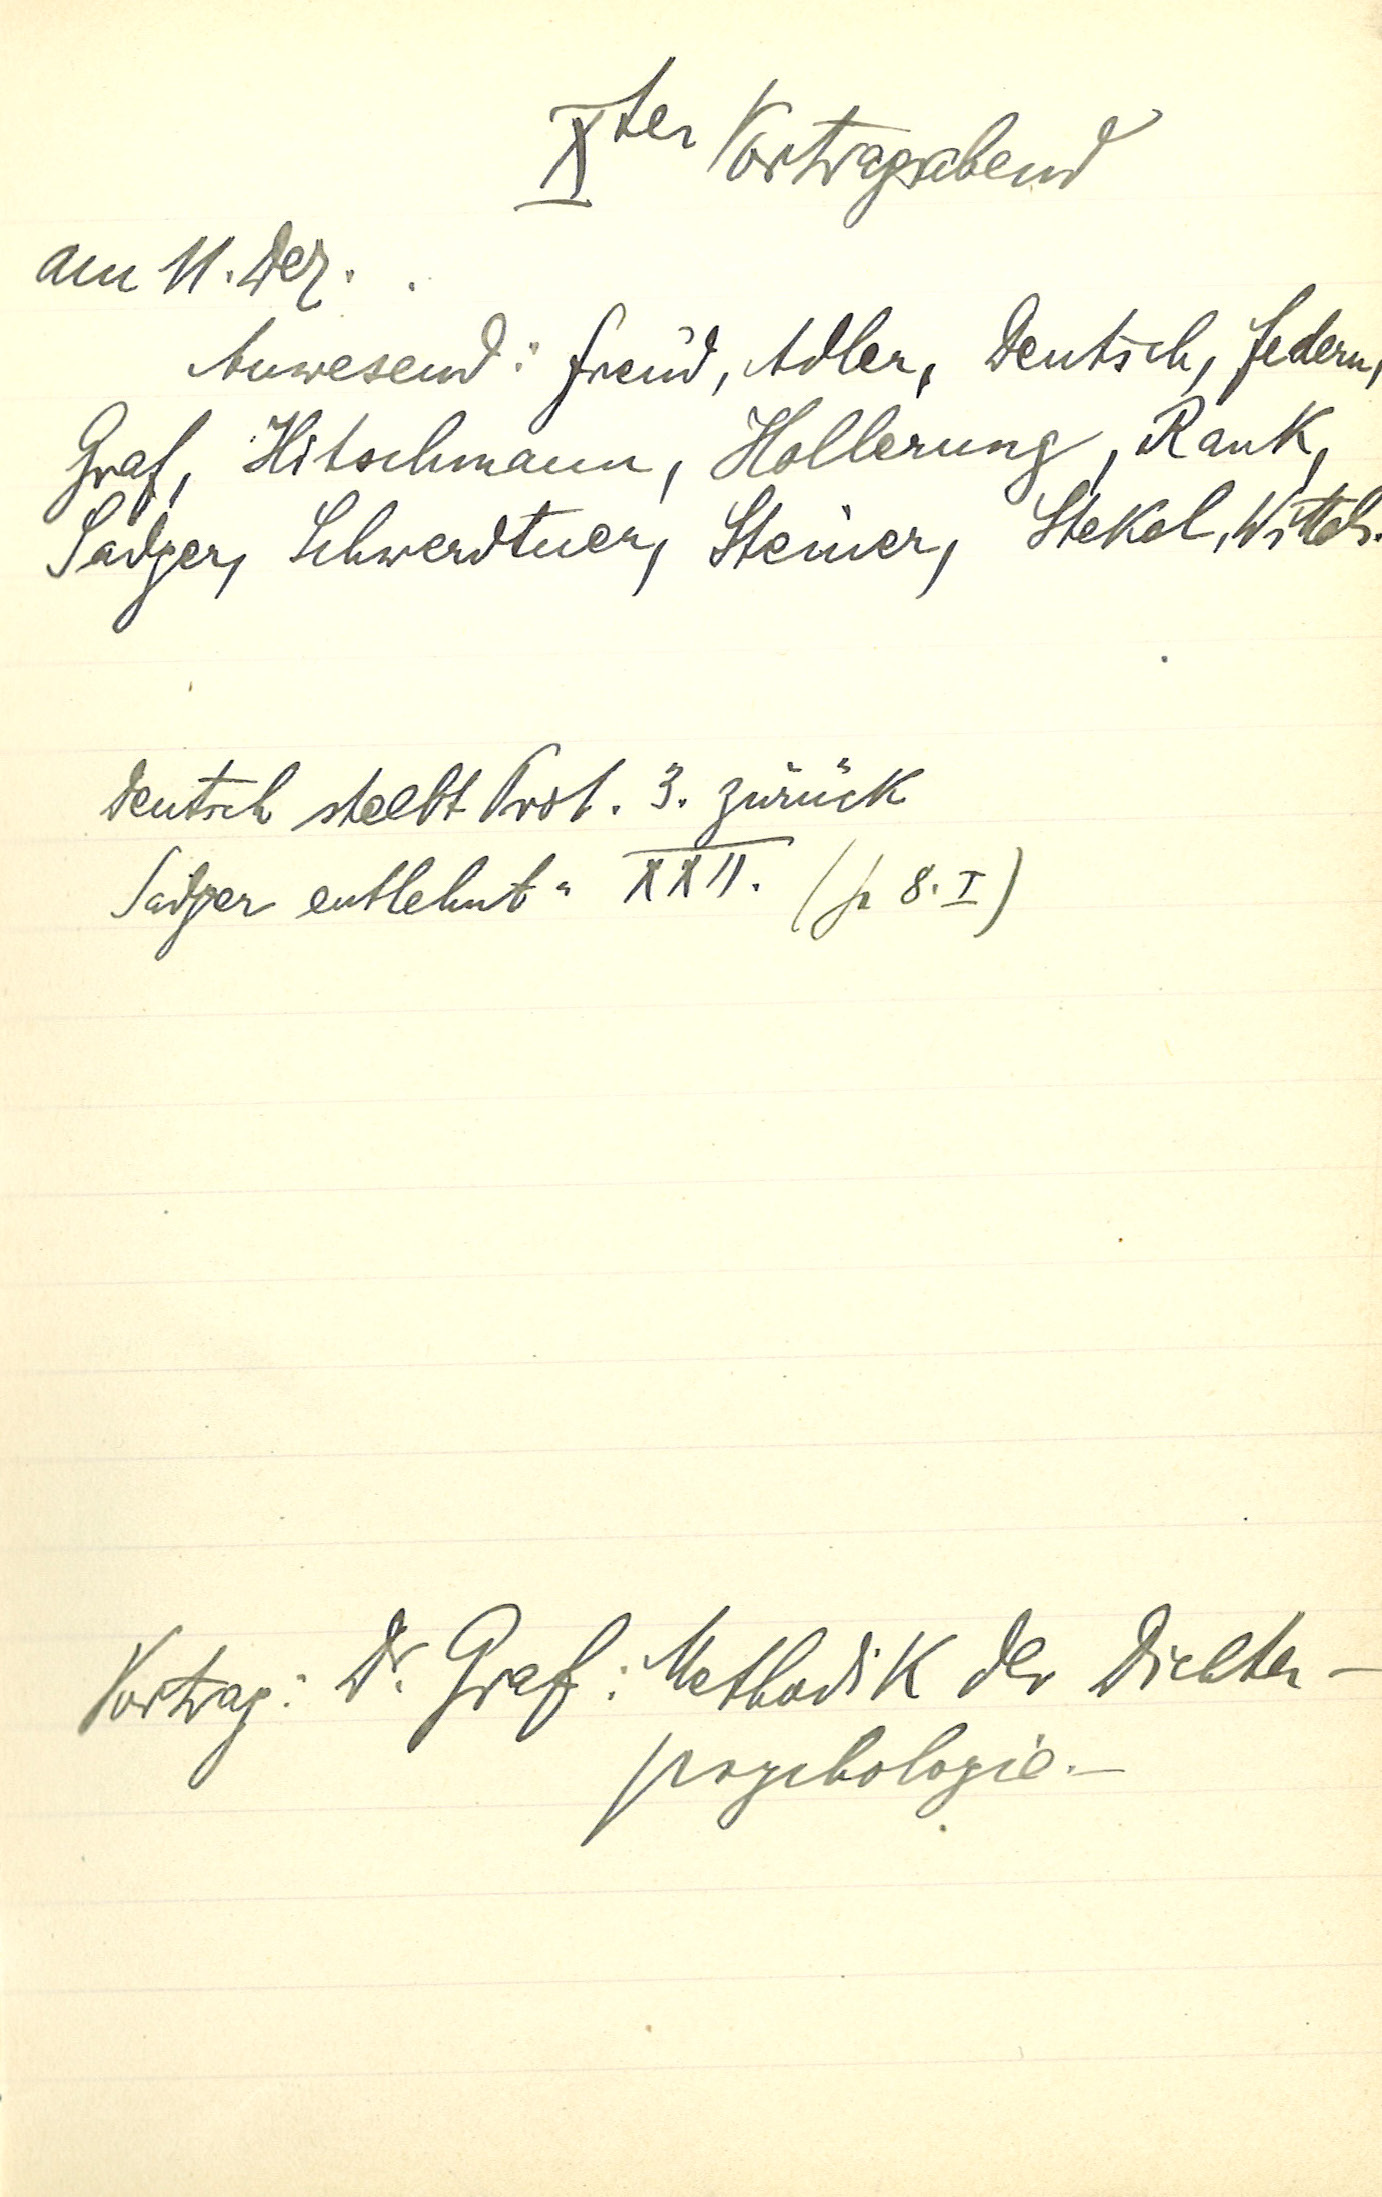 Xter Vortragsabend
am 11. Dez.
Anwesend: Freud, Adler, Deutsch, Federn,
Graf, Hitschmann, Hollerung, Rank,
Sadger, Schwerdtner, Steiner, Stekel, Wittels.
Deutsch stellt Prot. 3. zurück
Sadger entlehnt " XXII. (p 8. I)
Vortrag: Dr. Graf: Methodik der Dichter-
psychologie.—